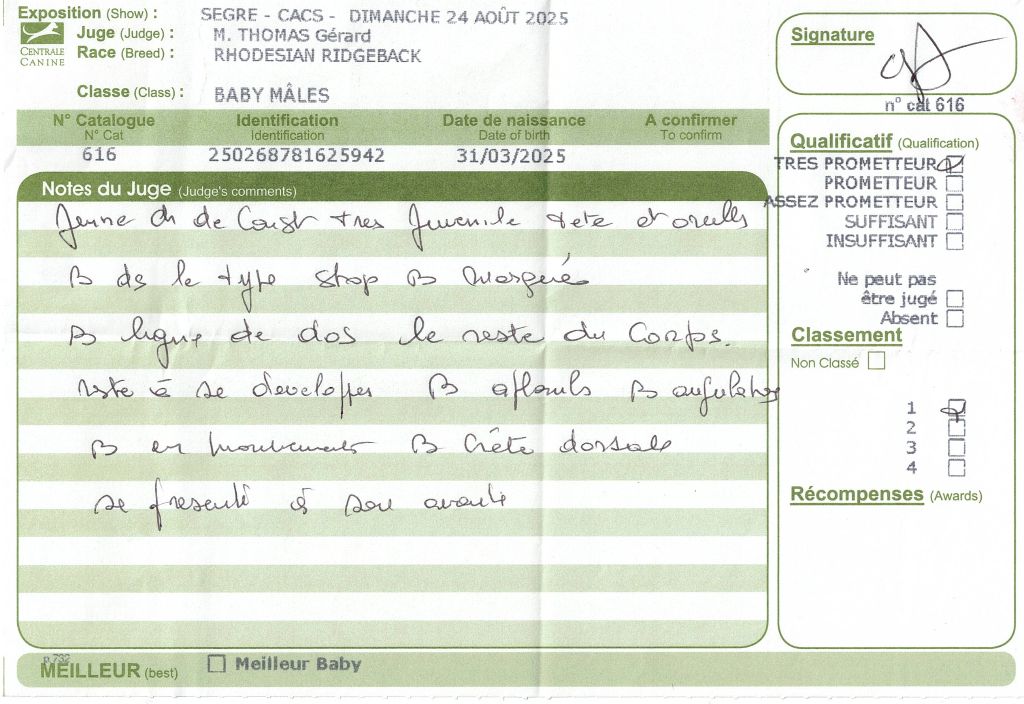 Exposition (Show) : SEGRE - CACS - DIMANCHE 24 AOÛT 2025
Juge (Judge) : M. THOMAS Gérard
Race (Breed) : RHODESIAN RIDGEBACK
CENTRALE CANINE
Classe (Class) : BABY MÂLES
Signature
n° cat 616
N° Catalogue Identification Date de naissance A confirmer
N° Cat Identification Date of birth To confirm
616 250268781625942 31/03/2025
Notes du Juge (Judge's comments)
Jeune ch de Const tres juvenile tete et oreilles
B ds le type stop B marqué
B ligne de dos le reste du Corps.
reste à se developper B aplombs B angulations
B en mouvements B Crête dorsale
se presente à son avante
Qualificatif (Qualification)
TRES PROMETTEUR
PROMETTEUR
ASSEZ PROMETTEUR
SUFFISANT
INSUFFISANT
Ne peut pas
être jugé
Absent
Classement
Non Classé
1
2
3
4
Récompenses (Awards)
p.732
MEILLEUR (best) Meilleur Baby